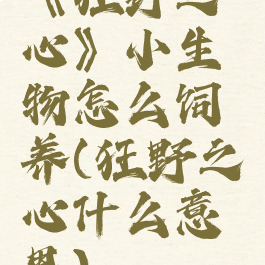 《狂野之
心》小生
物怎么饲
养(狂野之
心什么意
思)